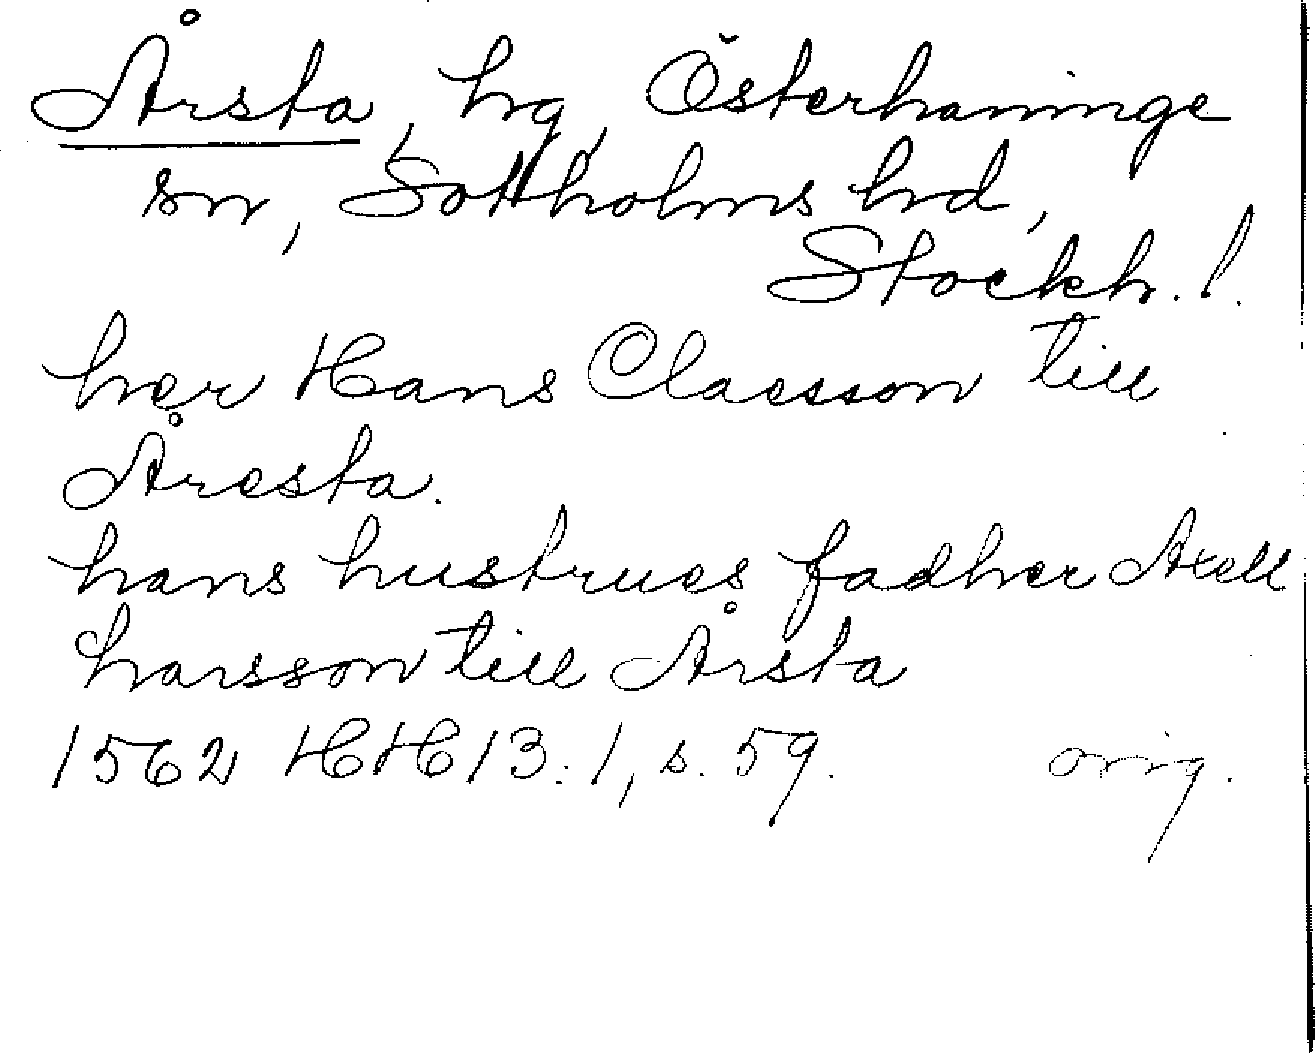 Årsta, hg, Österhaninge
sn, Sottholms hd,
Stockh. l.
her Hans Claesson till
Åresta.
hans hustrues fadher Axell
harsson till Årsta
1562 HH 13:1, s. 59. orig.